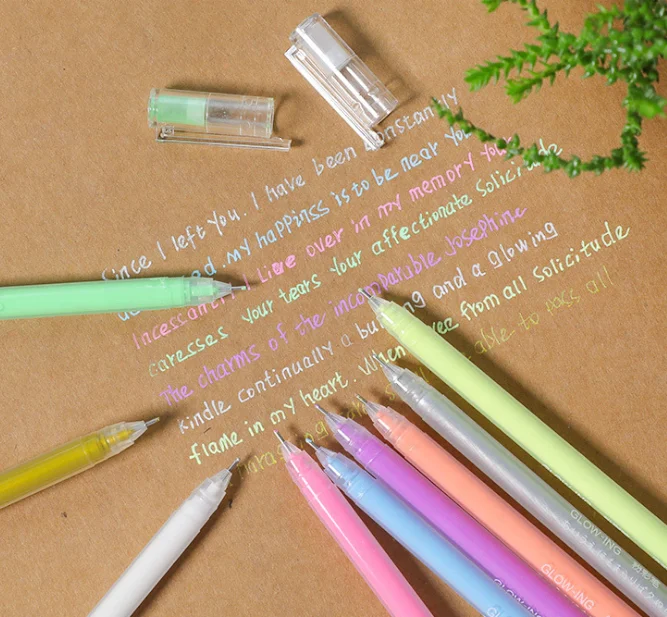 Since I left you. I have been constantly
my happinss is to be near you
Incessantly I live over in my memory your
caresses your tears your affectionate Solicitude
The charms of the incomparable Josephine
kindle continually a and a glowing
flame in my heart. When from all Solicitude
able to pass all
GLOW-ING
GLOW-ING
GLOW-ING
GLOW-ING